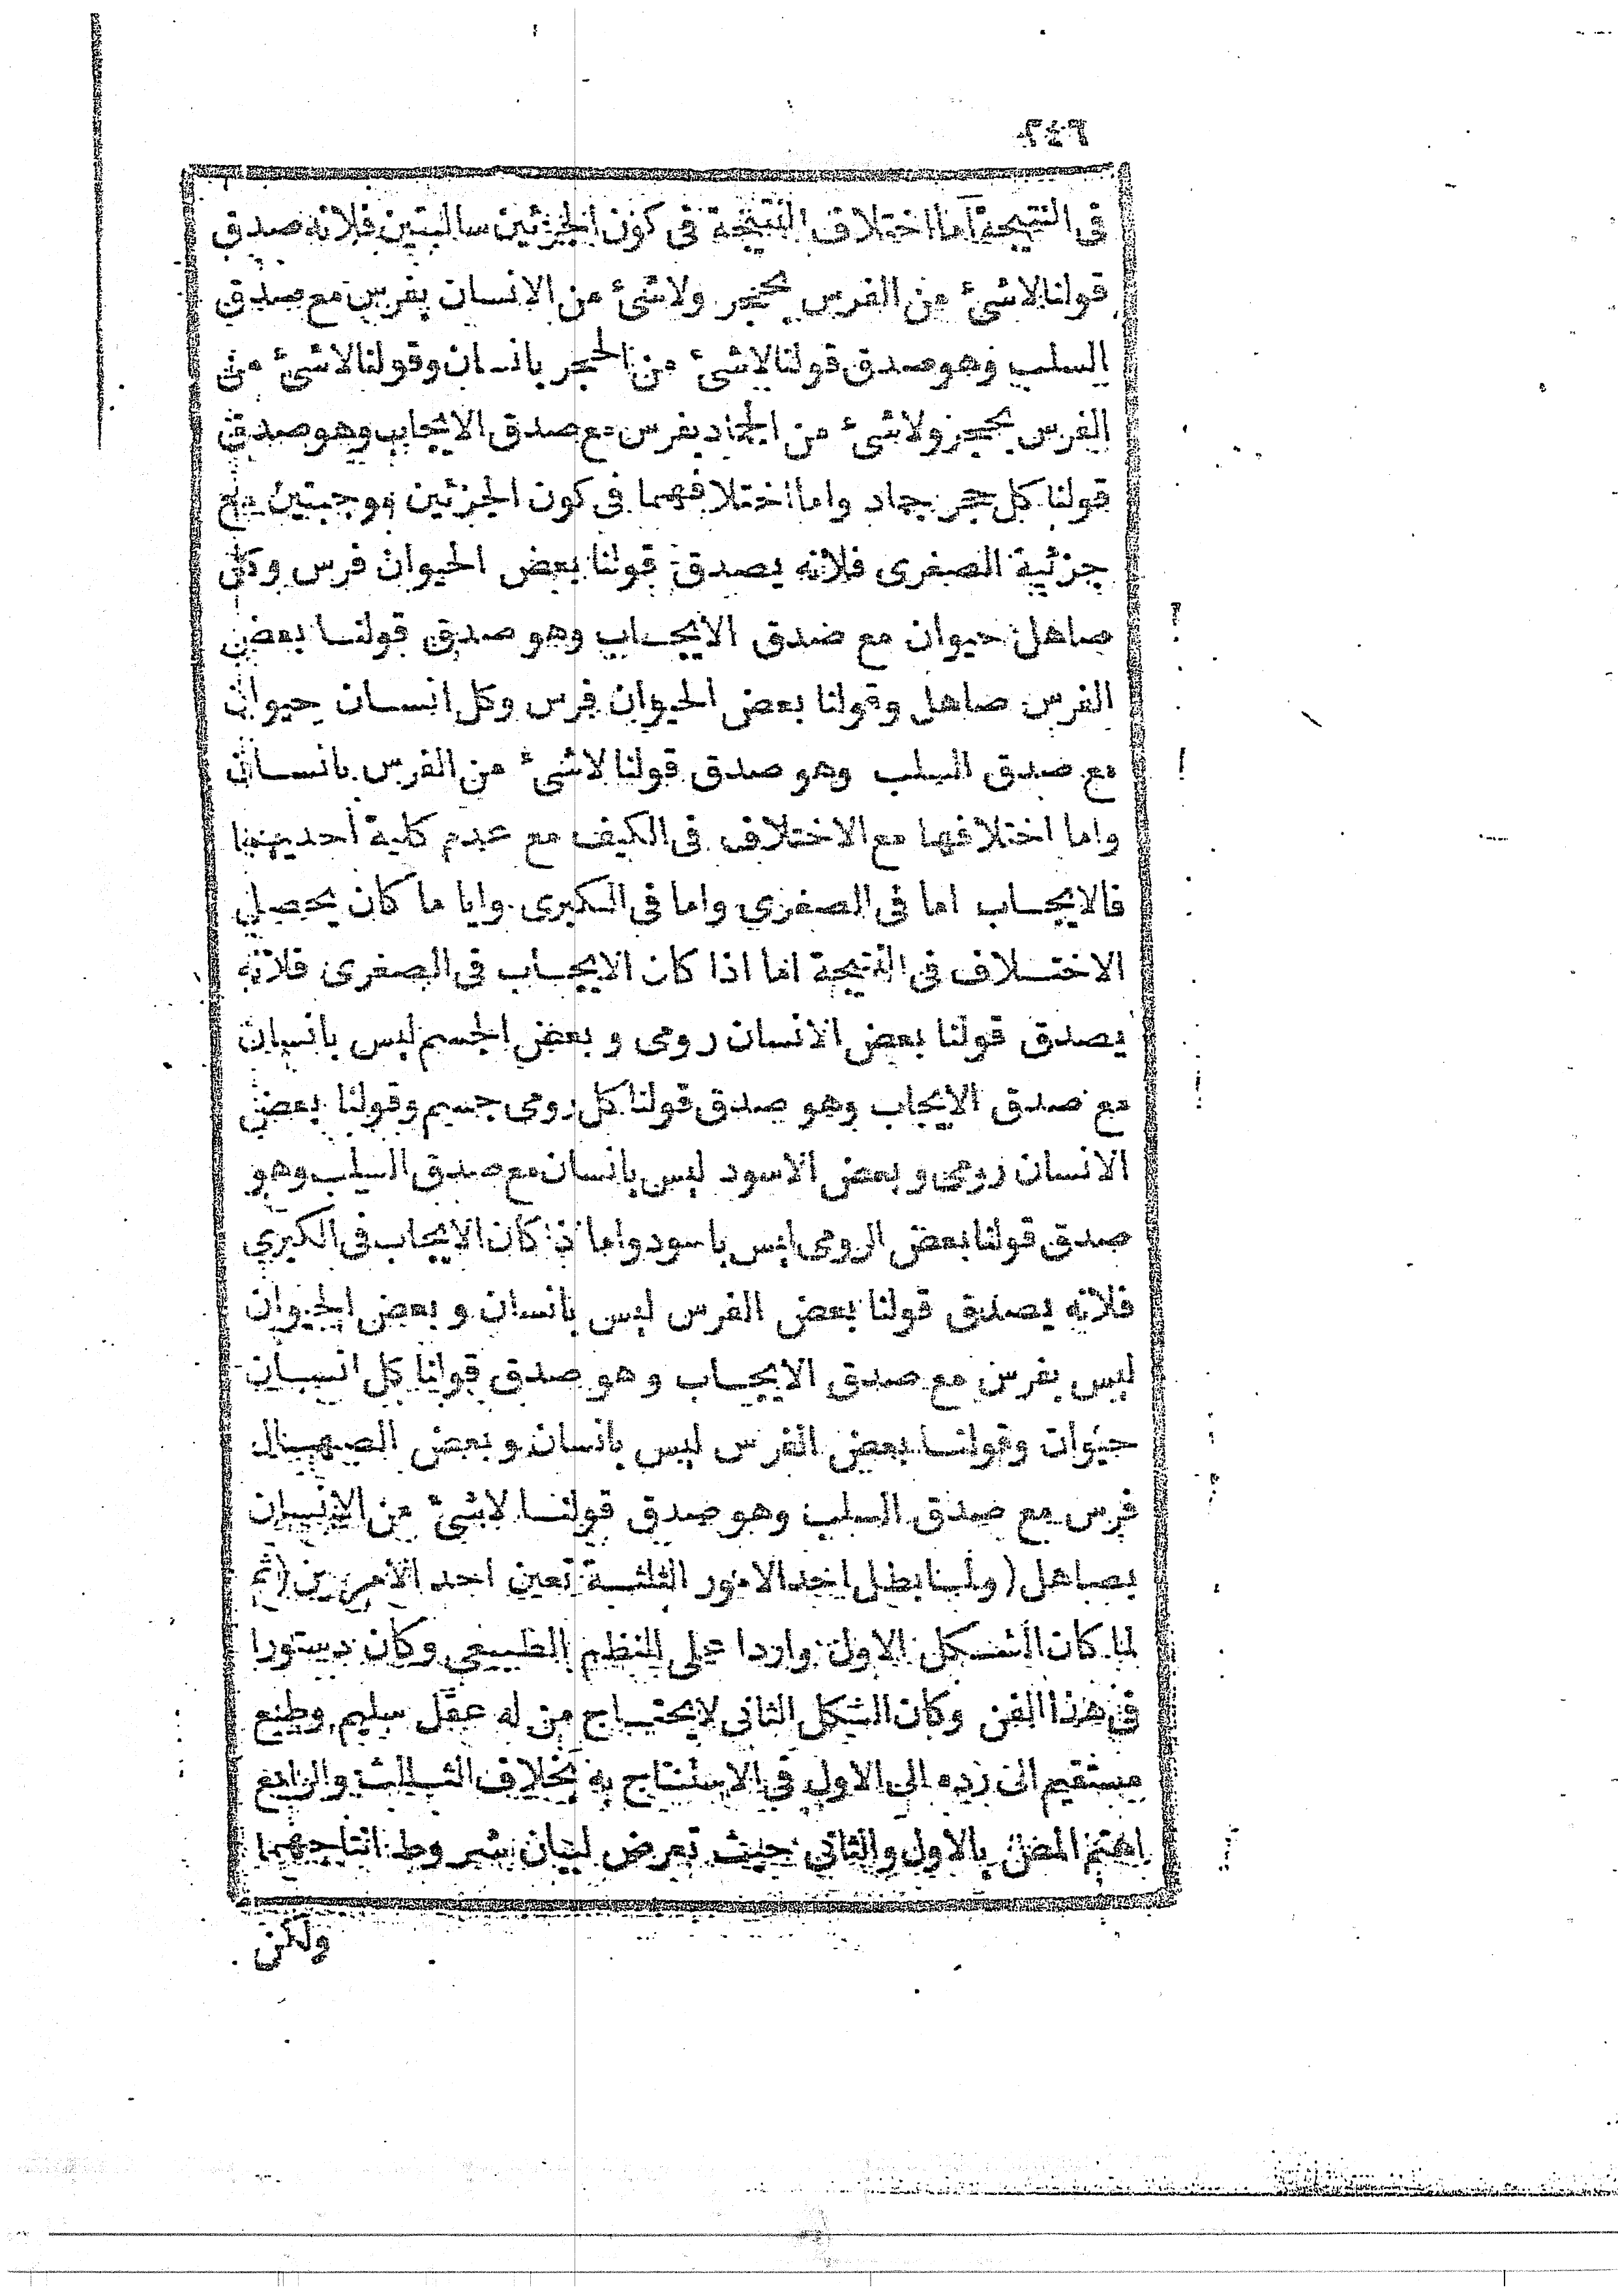 ٢٤٦
فى النتيجة اما اختلاف النتيجة فى كون الجزئين سالبتين فلانه صدق
قولنا لاشئ من الفرس بحجر ولاشئ من الانسان بفرس مع صدق
السلب وهو صدق قولنا لاشئ من الحجر بانسان وقولنا لاشئ من
الفرس بحجر ولاشئ من الجماد بفرس مع صدق الايجاب وهو صدق
قولنا كل حجر جماد واما اختلافهما فى كون الجزئين موجبتين مع
جزئية الصغرى فلانه يصدق قولنا بعض الحيوان فرس وكل
صاهل حيوان مع صدق الايجاب وهو صدق قولنا بعض
الفرس صاهل وقولنا بعض الحيوان فرس وكل انسان حيوان
مع صدق السلب وهو صدق قولنا لاشئ من الفرس بانسان
واما اختلافها مع الاختلاف فى الكيف مع عدم كلية احديهما
فالايجاب اما فى الصغرى واما فى الكبرى وايا ما كان يحصل
الاختلاف فى النتيجة اما اذا كان الايجاب فى الصغرى فلانه
يصدق قولنا بعض الانسان رومى و بعض الجسم ليس بانسان
مع صدق الايجاب وهو صدق قولنا كل رومى جسم وقولنا بعض
الانسان رومى و بعض الاسود ليس بانسان مع صدق السلب وهو
صدق قولنا بعض الرومى ليس باسود واما اذا كان الايجاب فى الكبرى
فلانه يصدق قولنا بعض الفرس ليس بانسان و بعض الحيوان
ليس بفرس مع صدق الايجاب و هو صدق قولنا كل انسان
حيوان وقولنا بعض الفرس ليس بانسان و بعض الصهال
فرس مع صدق السلب وهو صدق قولنا لاشئ من الانسان
بصاهل (ولما بطل احد الامور الثلثة تعين احد الامرين (ثم
لما كان الشكل الاول واردا على النظم الطبيعى وكان دستورا
فى هذا الفن وكان الشكل الثانى لايحتاج من له عقل سليم وطبع
مستقيم الى رده الى الاول فى الاستنتاج به بخلاف الثالث والرابع
اهتم المص بالاول والثانى حيث تعرض لبيان شروط انتاجهما
ولكن